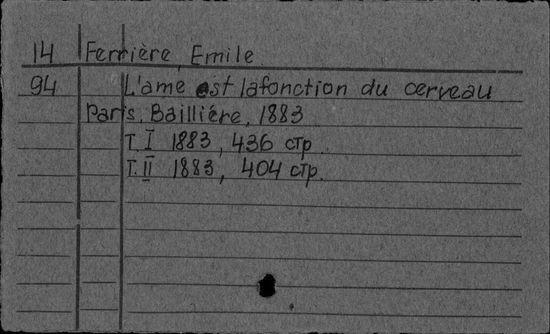 14 Ferrière, Emile
94 L'ame est lafonction du cerveau
Paris, Baillière, 1883
T. I 1883, 436 стр.
T. II 1883, 404 стр.